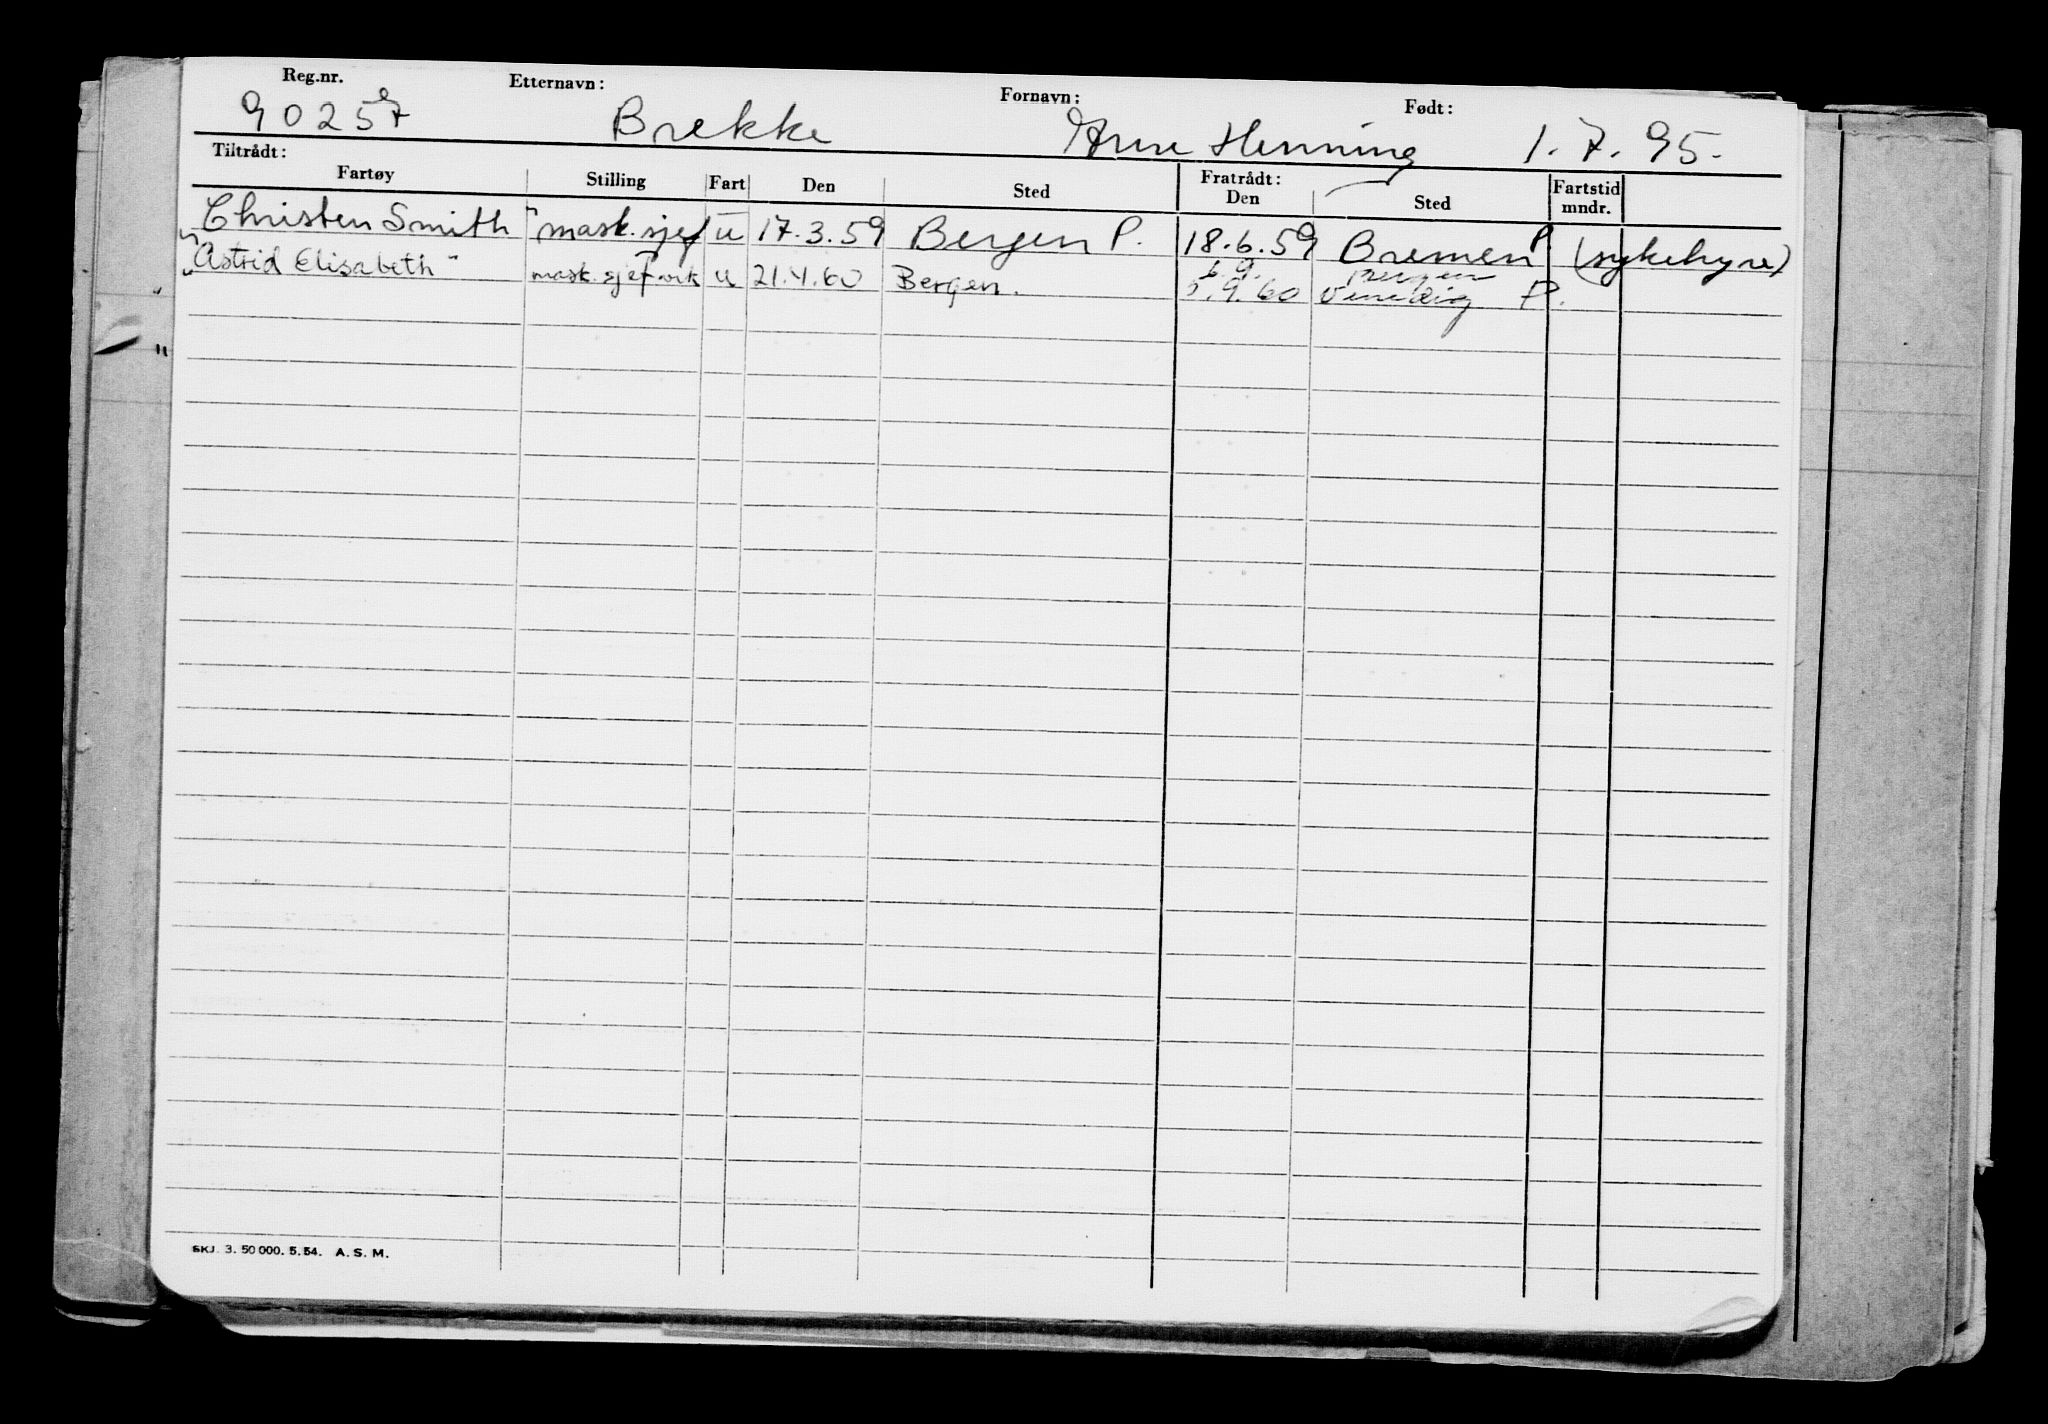 Reg.nr. Etternavn: Fornavn: Født:
9025 Brekke Arne Henning 1.7.95.
Tiltrådt: Fratrådt:
Fartøy Stilling Fart Den Sted Den Sted Fartstid mndr.
"Christen Smith" mask.sjef u 17.3.59 Bergen P. 18.6.59 Bremen P (sykehyre)
6.9. Bergen
"Astrid Elisabeth" mask.sjef.vik u 21.4.60 Bergen. 5.9.60 Venedig P.
SKJ. 3. 50 000. 5.54. A. S. M.